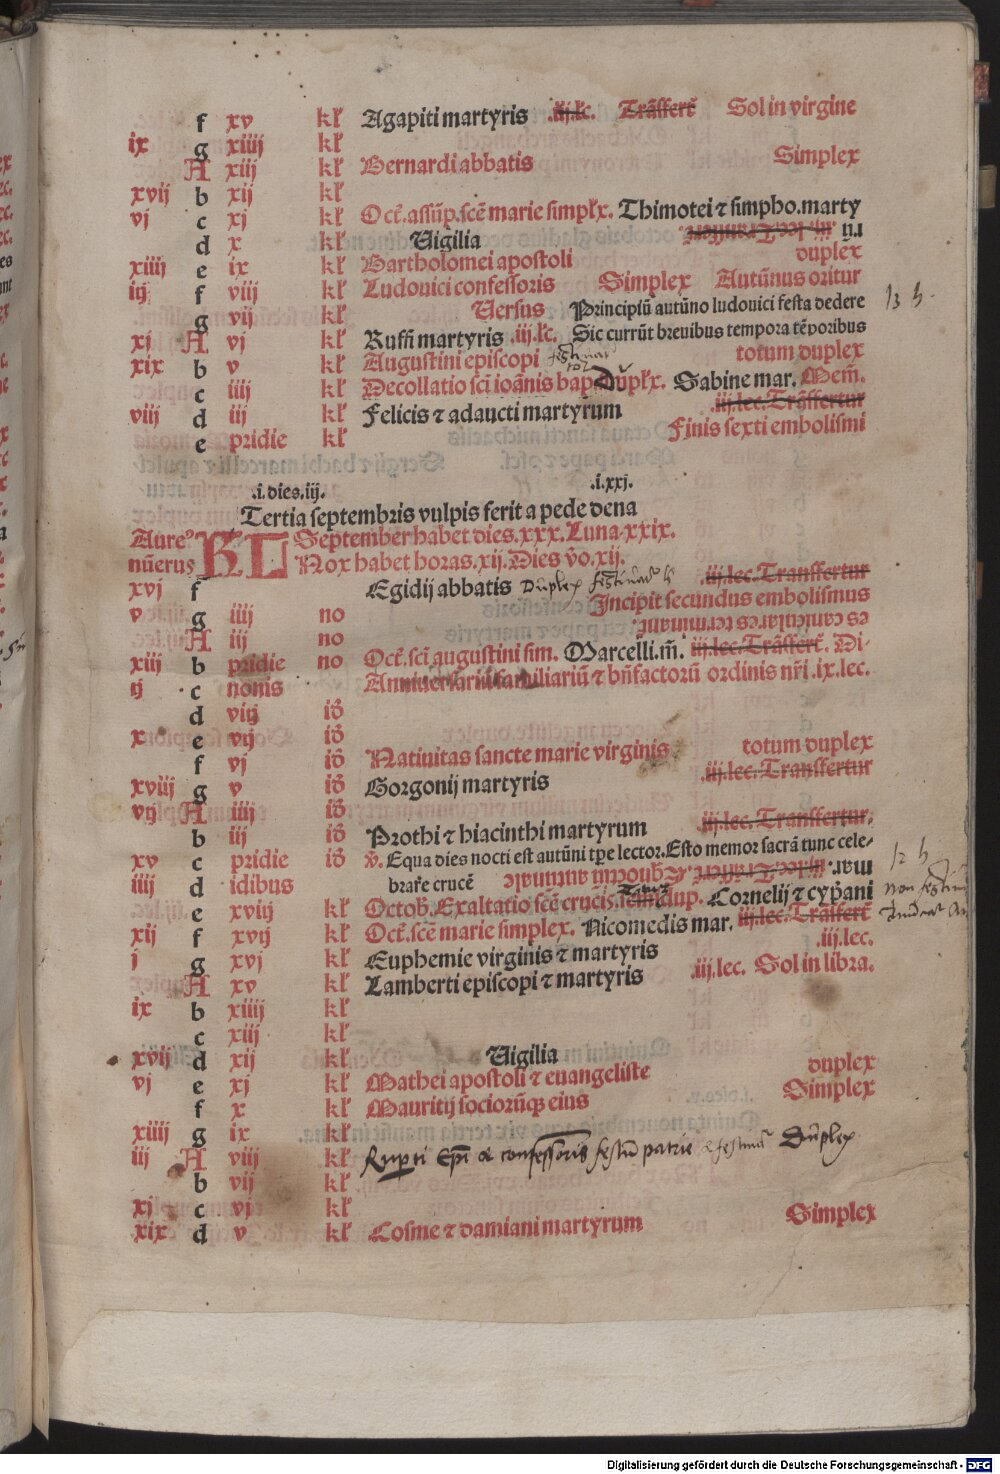 f xv kł Agapiti martyris .iij.łc. Trãsfert̃ Sol in virgine
ix g xiiij kł
A xiij kł Bernardi abbatis Simplex
xvij b xij kł
vj c xj kł Oct̃. assũp. scẽ marie simpłx. Thimotei ⁊ simpho. marty
d x kł Uigilia rũ .iij.lec. Transfertur.
xiiij e ix kł Bartholomei apostoli duplex
iij f viij kł Ludouici confessoris Simplex Autũnus oritur
g vij kł Uersus Principiũ autũno ludouici festa dedere
xj A vj kł Ruffi martyris .iij.łc. Sic currũt breuibus tempora tẽporibus
xix b v kł Augustini episcopi totum duplex
c iiij kł Decollatio sc̃i ioãnis bap. Dupłx. Sabine mar. Mem̃.
viij d iij kł Felicis ⁊ adaucti martyrum .iij.lec. Trãsfertur
e pridie kł Finis sexti embolismi
.i. dies .iij. .i. xxj.
Tertia septembris vulpis ferit a pede dena
Aure⁹ KL September habet dies .xxx. Luna .xxix.
nũerus Nox habet horas .xij. Dies v̊o .xij.
xvj f Egidij abbatis Duplex .iij.lec. Transfertur
v g iiij no Incipit secundus embolismus
A iij no es caniculares terminant̃.
xiij b pridie no Oct̃. sc̃i augustini sim. Marcelli. m̃. .iij.lec. Trãsfert̃. Di-
ij c nonis Anniuersariũ familiariũ ⁊ bñfactorũ ordinis nr̃i .ix. lec.
d viij iď
x e vij iď
f vj iď Natiuitas sancte marie virginis totum duplex
xviij g v iď Gorgonij martyris .iij.lec. Transfertur
vij A iiij iď
b iij iď Prothi ⁊ hiacinthi martyrum .iij.lec. Transfertur.
xv c pridie iď v̊. Equa dies nocti est autũni tp̃e lector. Esto memor sacrã tunc cele-
iiij d idibus brar̃e crucẽ mar. .iij.lec. Trãsfert̃. Equinoctiũ autumnale
e xviij kł Octob̃. Exaltatio scẽ crucis. dup. Cornelij ⁊ cyp̃ani
xij f xvij kł Oct̃. scẽ marie simplex. Nicomedis mar. .iij.lec. Trãsfert̃
j g xvj kł Euphemie virginis ⁊ martyris .iij.lec.
A xv kł Lamberti episcopi ⁊ martyris .iij.lec. Sol in libra.
ix b xiiij kł
c xiij kł
xvij d xij kł Uigilia
vj e xj kł Mathei apostoli ⁊ euangeliste duplex
f x kł Mauritij sociorũq; eius Simplex
xiiij g ix kł
iij A viij kł Rup̃ti Ep̃i & confessoris festũ patrie Duplex
b vij kł
xj c vj kł
xix d v kł Cosme ⁊ damiani martyrum Simplex
Digitalisierung gefördert durch die Deutsche Forschungsgemeinschaft - DFG